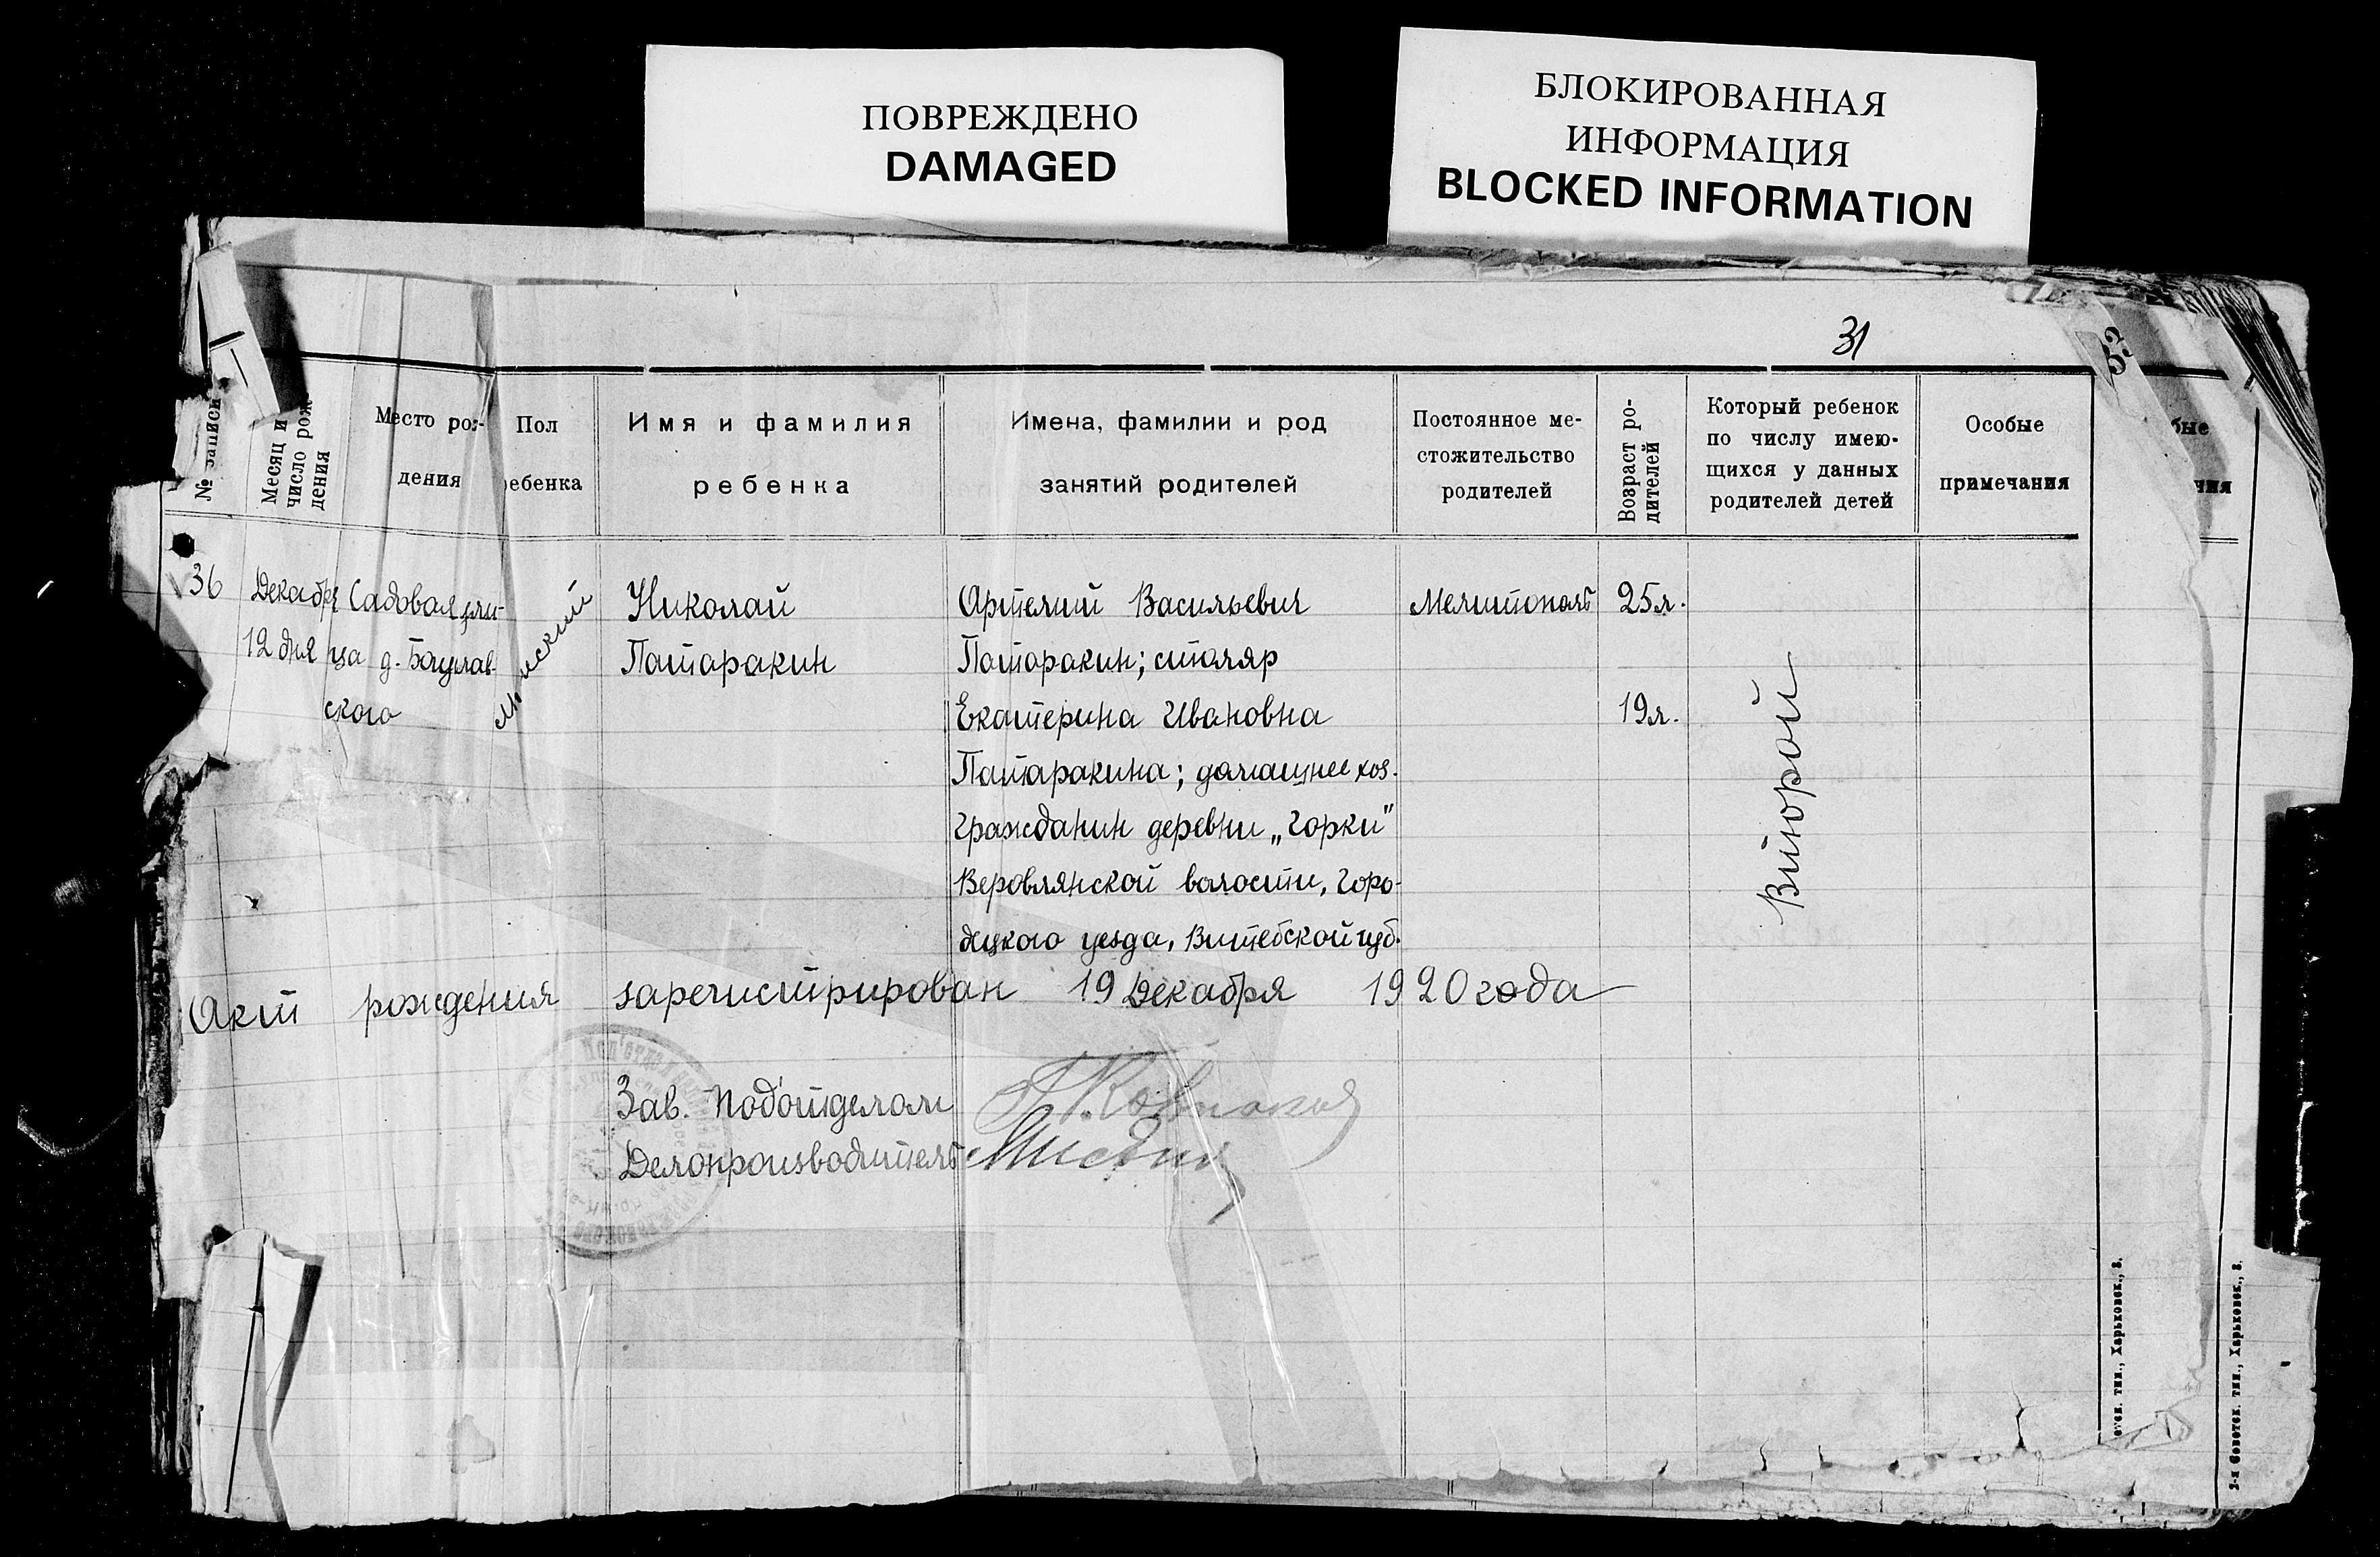 ПОВРЕЖДЕНО
DAMAGED
БЛОКИРОВАННАЯ
ИНФОРМАЦИЯ
BLOCKED INFORMATION
31
33
№ записи
Месяц и
число рож-
дения
Место ро-
дения
Пол
ребенка
Имя и фамилия
ребенка
Имена, фамилии и род
занятий родителей
Постоянное ме-
стожительство
родителей
Возраст ро-
дителей
Который ребенок
по числу имею-
щихся у данных
родителей детей
Особые
примечания
36
Декабря
12 дня
Садовая ули-
ца д. Богуслав-
ского
мужский
Николай
Патаракин
Артемий Васильевич
Патаракин; столяр
Екатерина Ивановна
Патаракина; домашнее хоз.
гражданин деревни „Горки"
Веровлянской волости, Горо-
децкого уезда, Витебской губ.
Мелитополь
25 л.
19 л.
Второй
Акт рождения зарегистрирован 19 Декабря 1920 года
Зав. Подотделом
Делопроизводитель
тип., Харьковск., 8.
2-я Советск. тип., Харьковск., 8.